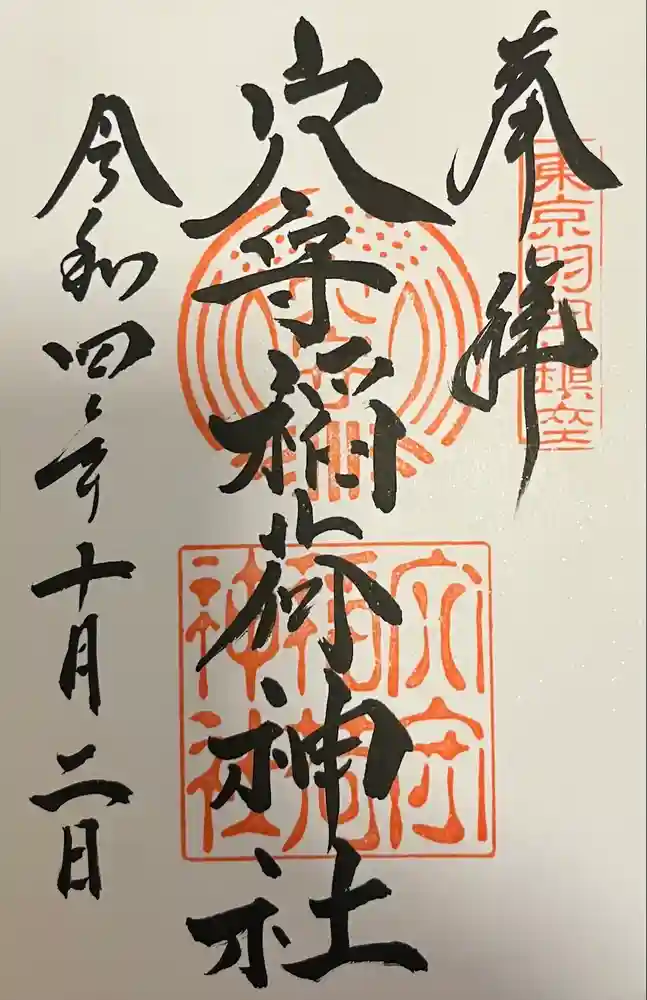 奉拝
東京羽田鎮座
穴守稲荷神社
穴守
稲荷
神社
令和四年十月二日